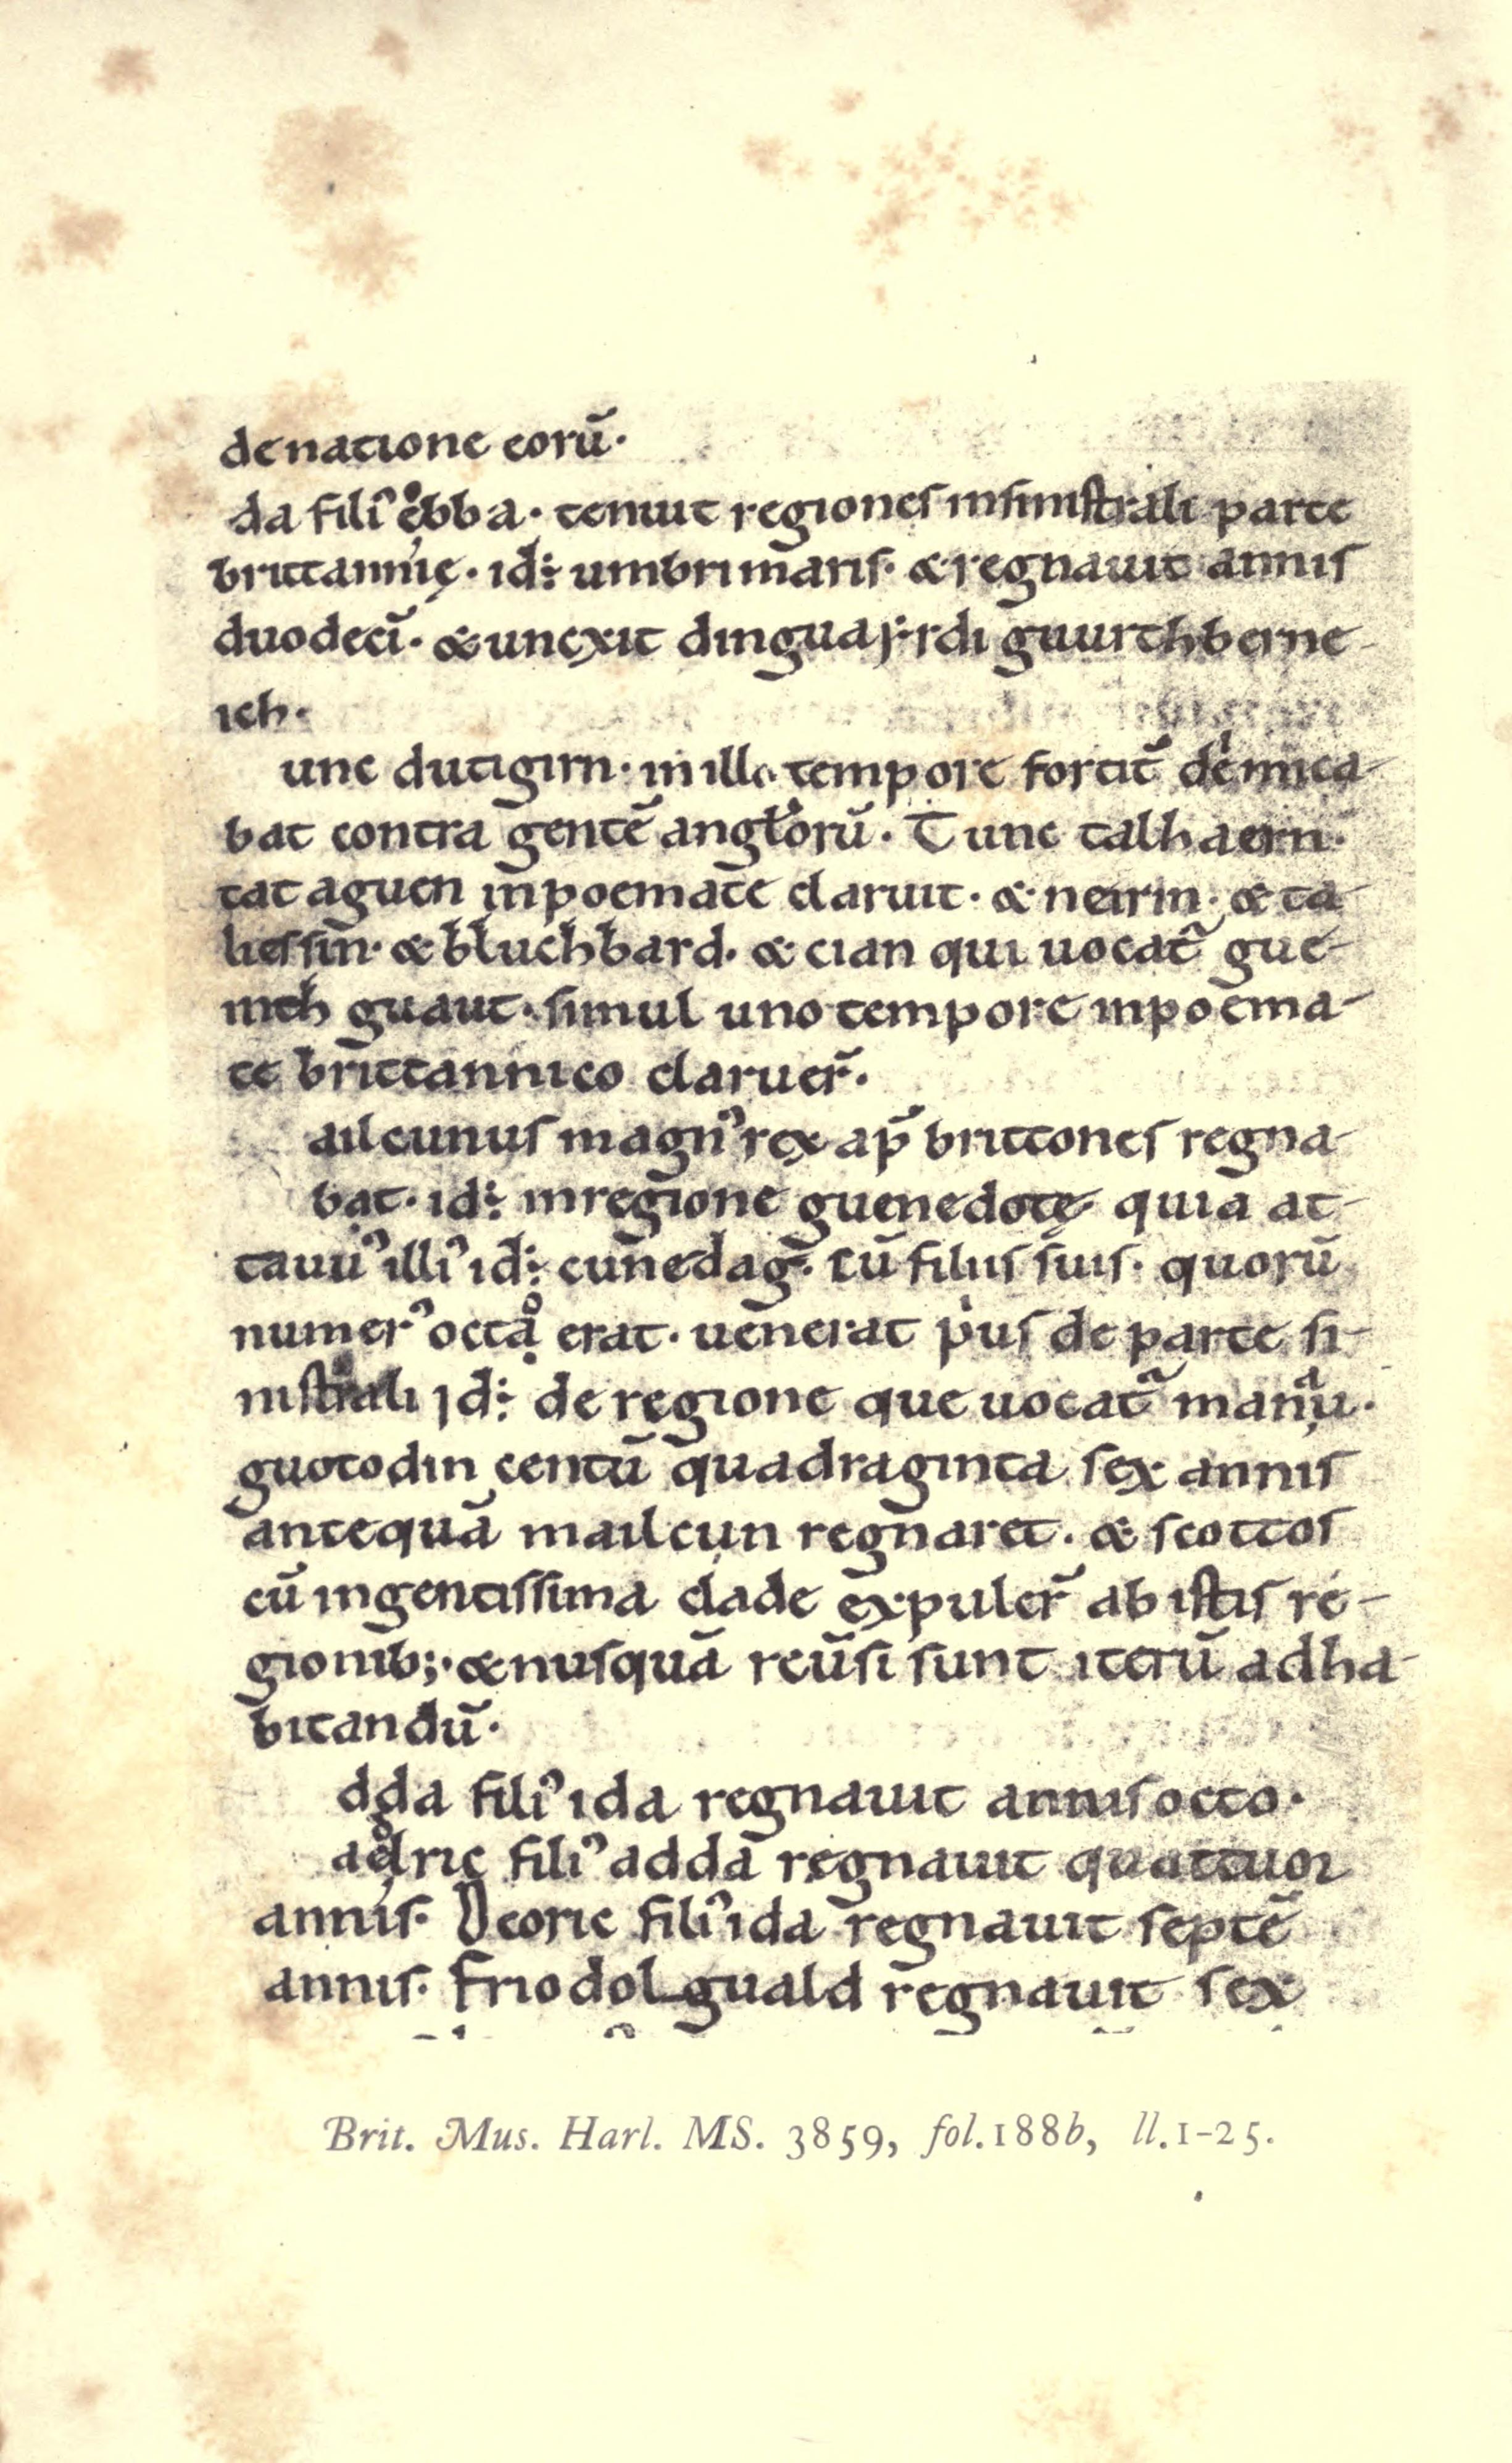 de natione eorū·
da fili᾿ eͦbba· tenuit regiones insinistrali parte
brittannię· id÷ umbri maris· & regnauit annis
duodecī· & unexit dinguayrdi guurth berne-
ich·
unc dutigirn· in illo tempore fortit̄ deͥmica-
bat contra gentē angloꝛū· Tunc talhaern·
tat aguen inpoemate claruit· & neirin· & ta-
liessin· & bluchbard· & cian qui uocat᷑ gue-
nith guaut· simul uno tempore inpoema-
te brittannico claruer̄·
ailcunus magn᾿ rex ap̄ brittones regna-
bat· id÷ inregione guenedotę quia at-
tauu᾿ illi᾿ id÷ cunedag· cū filiis suis· quorū
numer᾿ octaͦ erat· uenerat pͥus de parte si-
nistrali id÷ de regione que uocat᷑ manaͣu·
guotodin centū quadraginta sex annis
antequā mailcun regnaret· & scottos
cū ingentissima clade expuler̄ ab istis re-
gionib;· & nusquā reūsi sunt iterū adha-
bitandū·
dda fili᾿ ida regnauit annis octo·
aeͦdlric fili᾿ adda regnauit quattuor
annis· Deoric fili᾿ ida regnauit septē
annis· Friodolguald regnauit sex
Brit. Mus. Harl. MS. 3859, fol. 188b, ll. 1-25.